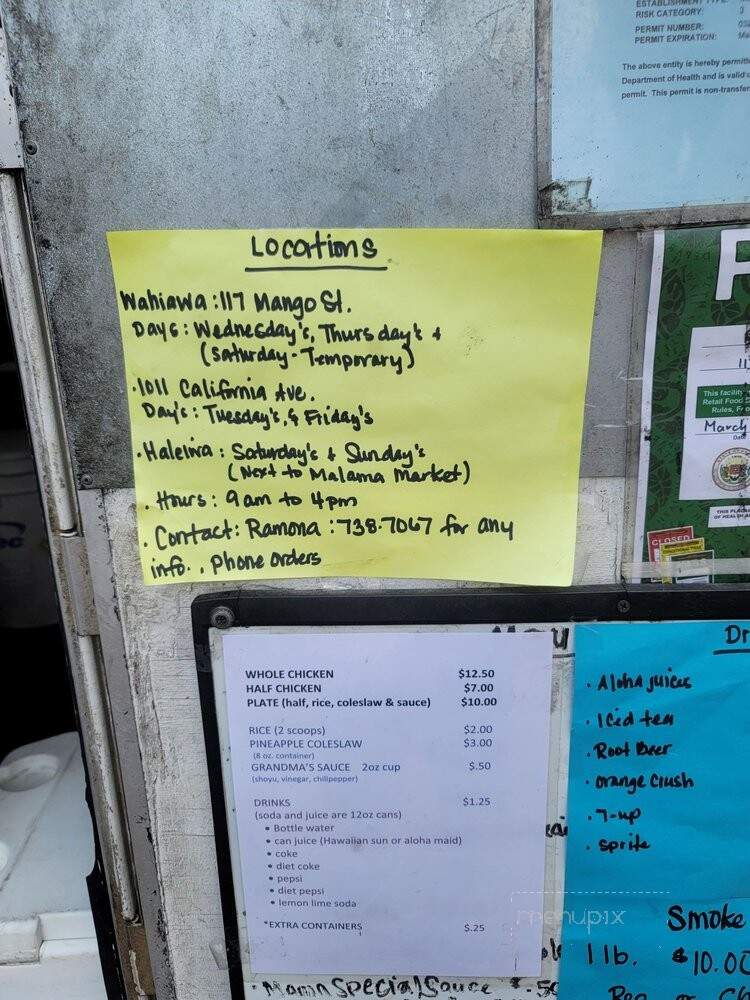 RISK CATEGORY: 3
PERMIT NUMBER:
PERMIT EXPIRATION:
The above entity is hereby
Department of Health and is
permit. This permit is
Locations
Wahiawa : 117 Mango St.
Days : Wednesday's, Thursday's +
(Saturday - Temporary)
· 1011 California Ave.
Day's : Tuesday's, & Friday's
· Haleiwa : Saturday's & Sunday's
(Next to Malama Market)
· Hours : 9am to 4pm
· Contact : Ramona : 738.7067 for any
info. , Phone orders
This facility
Retail Food
March
CLOSED
Menu
WHOLE CHICKEN $12.50
HALF CHICKEN $7.00
PLATE (half, rice, coleslaw & sauce) $10.00
RICE (2 scoops) $2.00
PINEAPPLE COLESLAW $3.00
(8 oz. container)
GRANDMA'S SAUCE 2oz cup $.50
(shoyu, vinegar, chilipepper)
DRINKS $1.25
(soda and juice are 12oz cans)
• Bottle water
• can juice (Hawaiian sun or aloha maid)
• coke
• diet coke
• pepsi
• diet pepsi
• lemon lime soda
*EXTRA CONTAINERS $.25
· Mama Special Sauce $.50
Dr
· Aloha juices
· Iced tea
· Root Beer
· orange crush
· 7-up
· sprite
Smoke
1 lb. $10.00
menupix